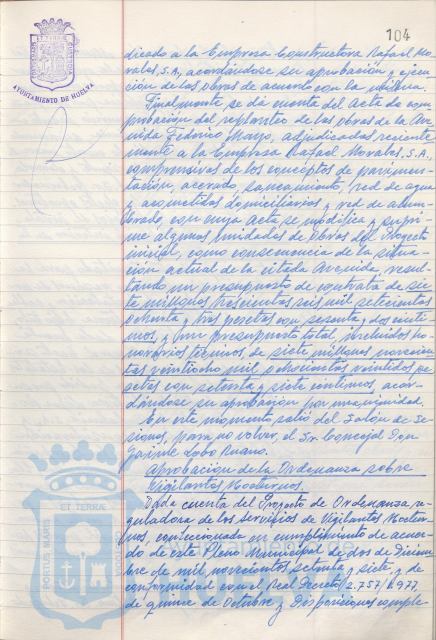 104
AYUNTAMIENTO DE HUELVA
dicado a la Empresa Constructora Rafael Mo-
rales, S.A., acordándose su aprobación y ejecu-
ción de las obras de acuerdo con la misma.
Finalmente se dá cuenta del Acta de com-
probación del replanteo de las obras de la Ave-
nida Federico Mayo, adjudicadas reciente-
mente a la Empresa Rafael Morales, S.A.,
comprensivas de los conceptos de pavimen-
tación, acerado, saneamiento, red de agua
y acometidas domiciliarias y red de alum-
brado, con cuya Acta se modifica y supri-
me algunas unidades de obras del Proyecto
inicial, como consecuencia de la situa-
ción actual de la citada Avenida, resul-
tando un presupuesto de contrata de sie-
te millones trescientas seis mil setecientas
ochenta y tres pesetas con sesenta y dos cénti-
mos, y un presupuesto total, incluidos ho-
norarios técnicos, de siete millones novecien-
tas veintiocho mil ochocientas veintidos pe-
setas con setenta y siete céntimos, acor-
dándose su aprobación por unanimidad.
En este momento salió del Salón de Se-
siones, para no volver, el Sr. Concejal Don
Jaime Lobo
Aprobación de la Ordenanza sobre
Vigilantes Nocturnos.
Dada cuenta del Proyecto de Ordenanza re-
guladora de los servicios de Vigilantes Noctur-
nos, confeccionada en cumplimiento de acuer-
do de este Pleno Municipal de dos de Diciem-
bre de mil novecientos setenta y siete, y de
conformidad con el Real Decreto 2.757/1977,
de quince de Octubre y Disposiciones comple-
PORTUS MARIS
ET TERRÆ
HUELVA